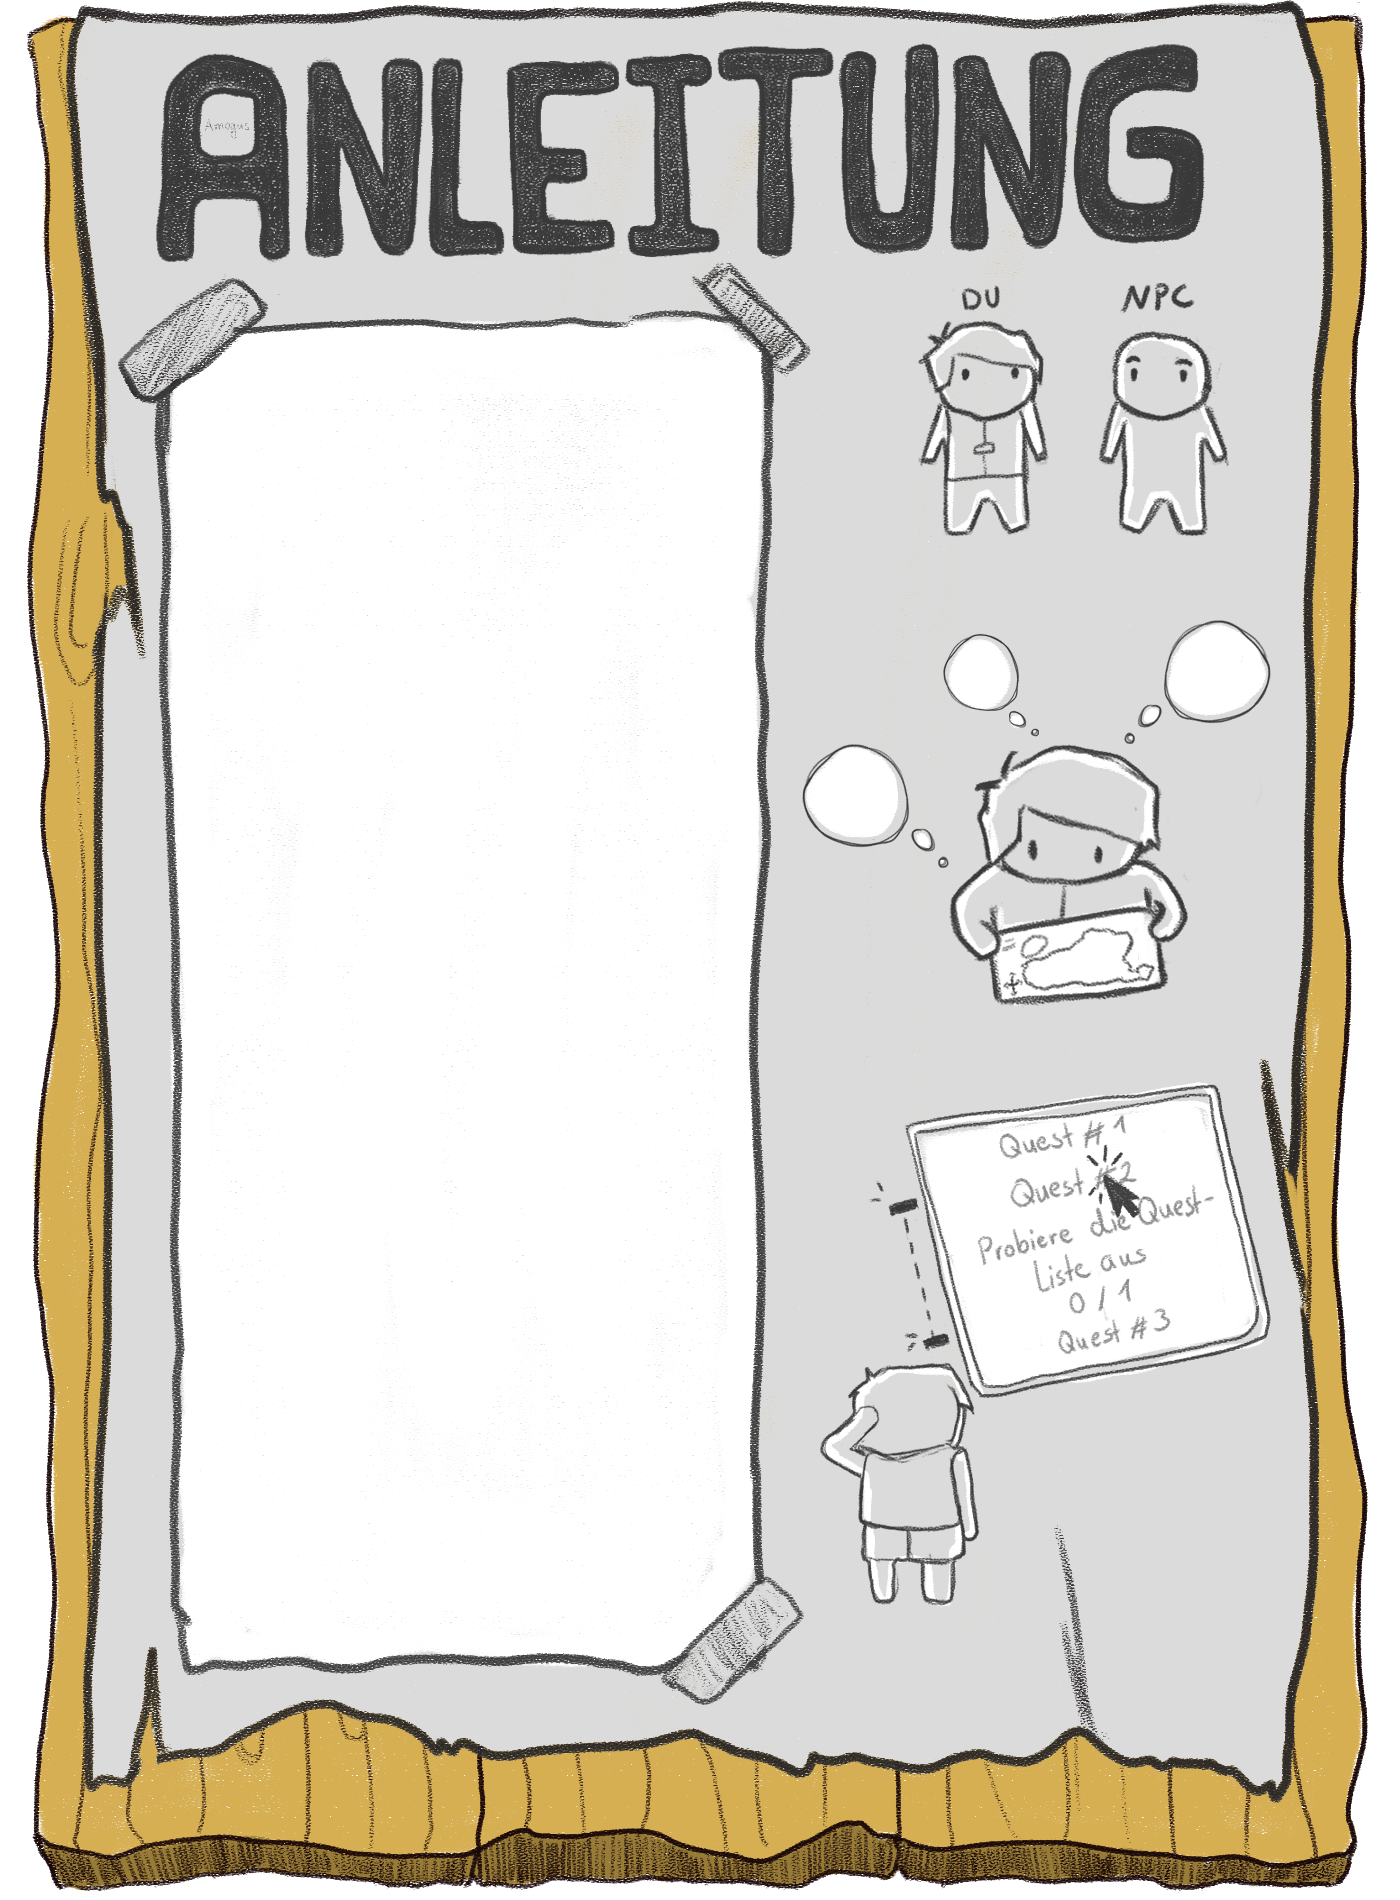 ANLEITUNG
Amogus
DU
NPC
Quest #1
Quest #2
Probiere die Quest-
Liste aus
0 / 1
Quest #3